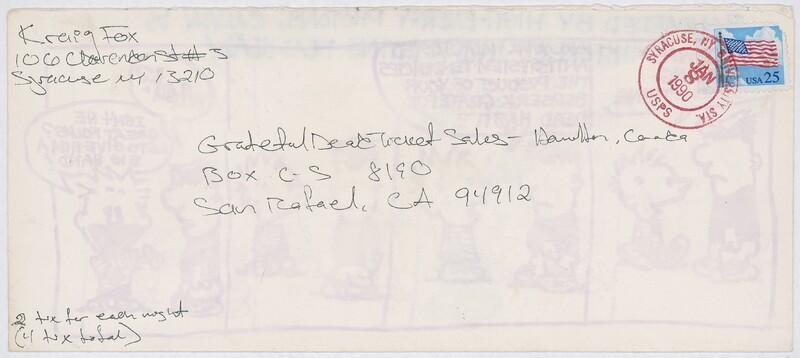 Kraig Fox
106 Clarendon St # 3
Syracuse NY 13210
SYRACUSE, NY UNIVERSITY STA.
JAN
1990
USPS
USA 25
Grateful Dead Ticket Sales - Hamilton, Canada
Box C-S 8190
San Rafael, CA 94912
2 tix for each night
(4 tix total)